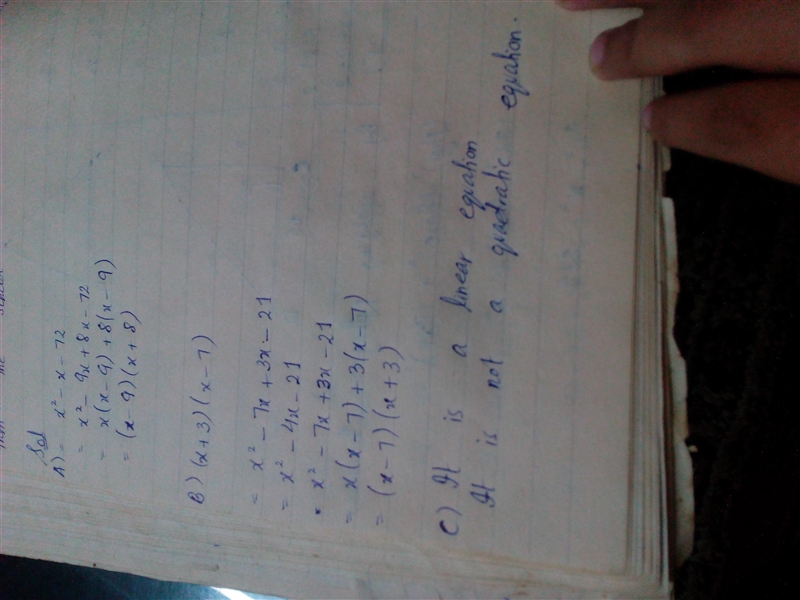 Sol
A) - x² - x - 72
= x² - 9x + 8x - 72
= x(x - 9) + 8(x - 9)
= (x - 9) (x + 8)
B) (x + 3) (x - 7)
= x² - 7x + 3x - 21
= x² - 4x - 21
• x² - 7x + 3x - 21
= x(x - 7) + 3(x - 7)
= (x - 7) (x + 3)
C) It is a linear equation
It is not a quadratic equation.